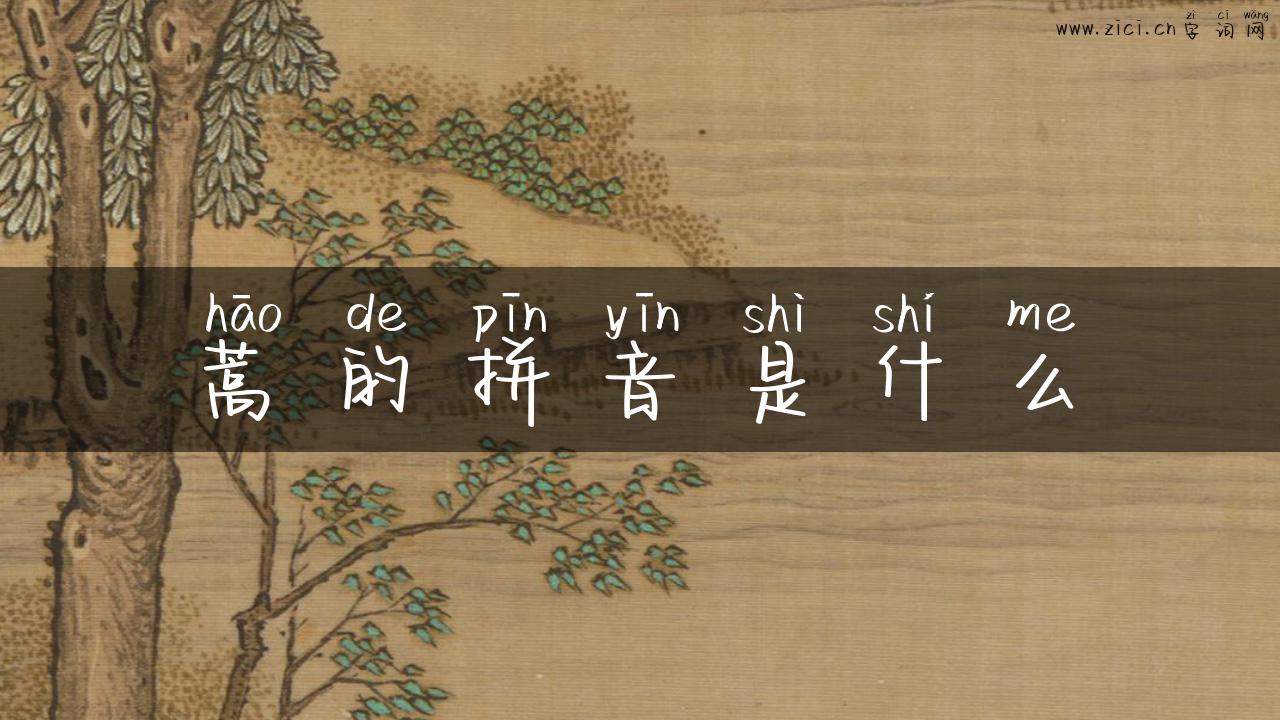 zì cí wǎng
www.zici.cn 字词网
hāo de pīn yīn shì shí me
蒿的拼音是什么